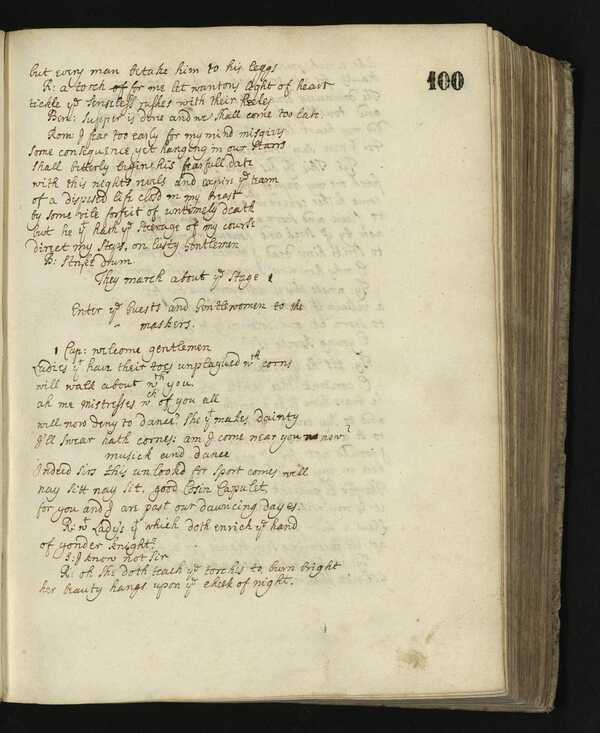 100
but every man betake him to his leggs
R: a torch for me let wantons light of heart
tickle yᵉ senseless rushes with their heeles
Ben: supper is done and we shall come too late
Rom: I fear too early for my mind misgivs
some consequence yet hanging in our starrs
shall bitterly begin his fearfull date
with this nights revels and expir yᵉ team
of a dispised life closd in my breast
by some vile forfeit of untimely death
but he yᵗ hath yᵉ steerage of my course
direct my steps, on lusty Gentlemen
B: strike drum.
They march about yᵉ stage
Enter yᵉ Guests and Gentlewomen to the
maskers.
1 Cap: welcome gentlemen
Ladies yᵗ have their toes unplagued wᵗʰ corns
will walk about wᵗʰ you.
ah me mistresses wᶜʰ of you all
will now deny to dance? she yᵗ makes dainty
I'll swear hath cornes: am I come near you now?
musick and dance
Indeed sirs this unlookd for sport comes will
nay sitt nay sit, good Cosin Capulet
for you and I are past our dauncing dayes.
R: wᵗ Ladys yᵗ which doth enrich yᵉ hand
of yonder knight?
S: I know not sir
R: oh she doth teach yᵉ torches to burn bright
her beauty hangs upon yᵉ cheek of night.